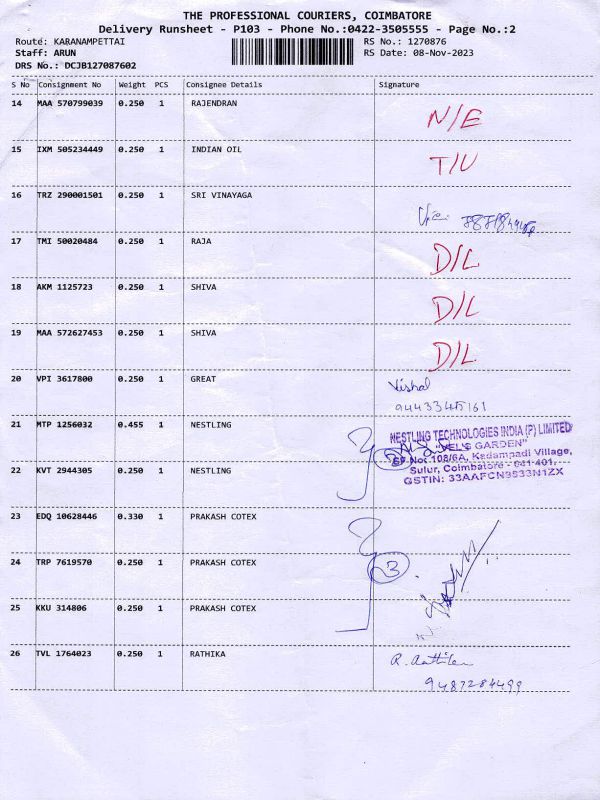 THE PROFESSIONAL COURIERS, COIMBATORE
Delivery Runsheet - P103 - Phone No.:0422-3505555 - Page No.:2
Route: KARANAMPETTAI RS No.: 1270876
Staff: ARUN RS Date: 08-Nov-2023
DRS No.: DCJB127087602
S No Consignment No Weight PCS Consignee Details Signature
14 MAA 570799039 0.250 1 RAJENDRAN
N/E
15 IXM 505234449 0.250 1 INDIAN OIL
T/U
16 TRZ 290001501 0.250 1 SRI VINAYAGA
17 TMI 50020484 0.250 1 RAJA
D/L
18 AKM 1125723 0.250 1 SHIVA
D/L
19 MAA 572627453 0.250 1 SHIVA
D/L
20 VPI 3617800 0.250 1 GREAT
Vishal
21 MTP 1256032 0.455 1 NESTLING
NESTLING TECHNOLOGIES INDIA (P) LIMITED
"VEL'S GARDEN"
SF No: 108/6A, Kadampadi Village,
22 KVT 2944305 0.250 1 NESTLING
Sulur, Coimbatore - 641 401.
GSTIN: 33AAFCN3533N1ZX
23 EDQ 10628446 0.330 1 PRAKASH COTEX
24 TRP 7619570 0.250 1 PRAKASH COTEX
3
25 KKU 314806 0.250 1 PRAKASH COTEX
26 TVL 1764023 0.250 1 RATHIKA
9487284499